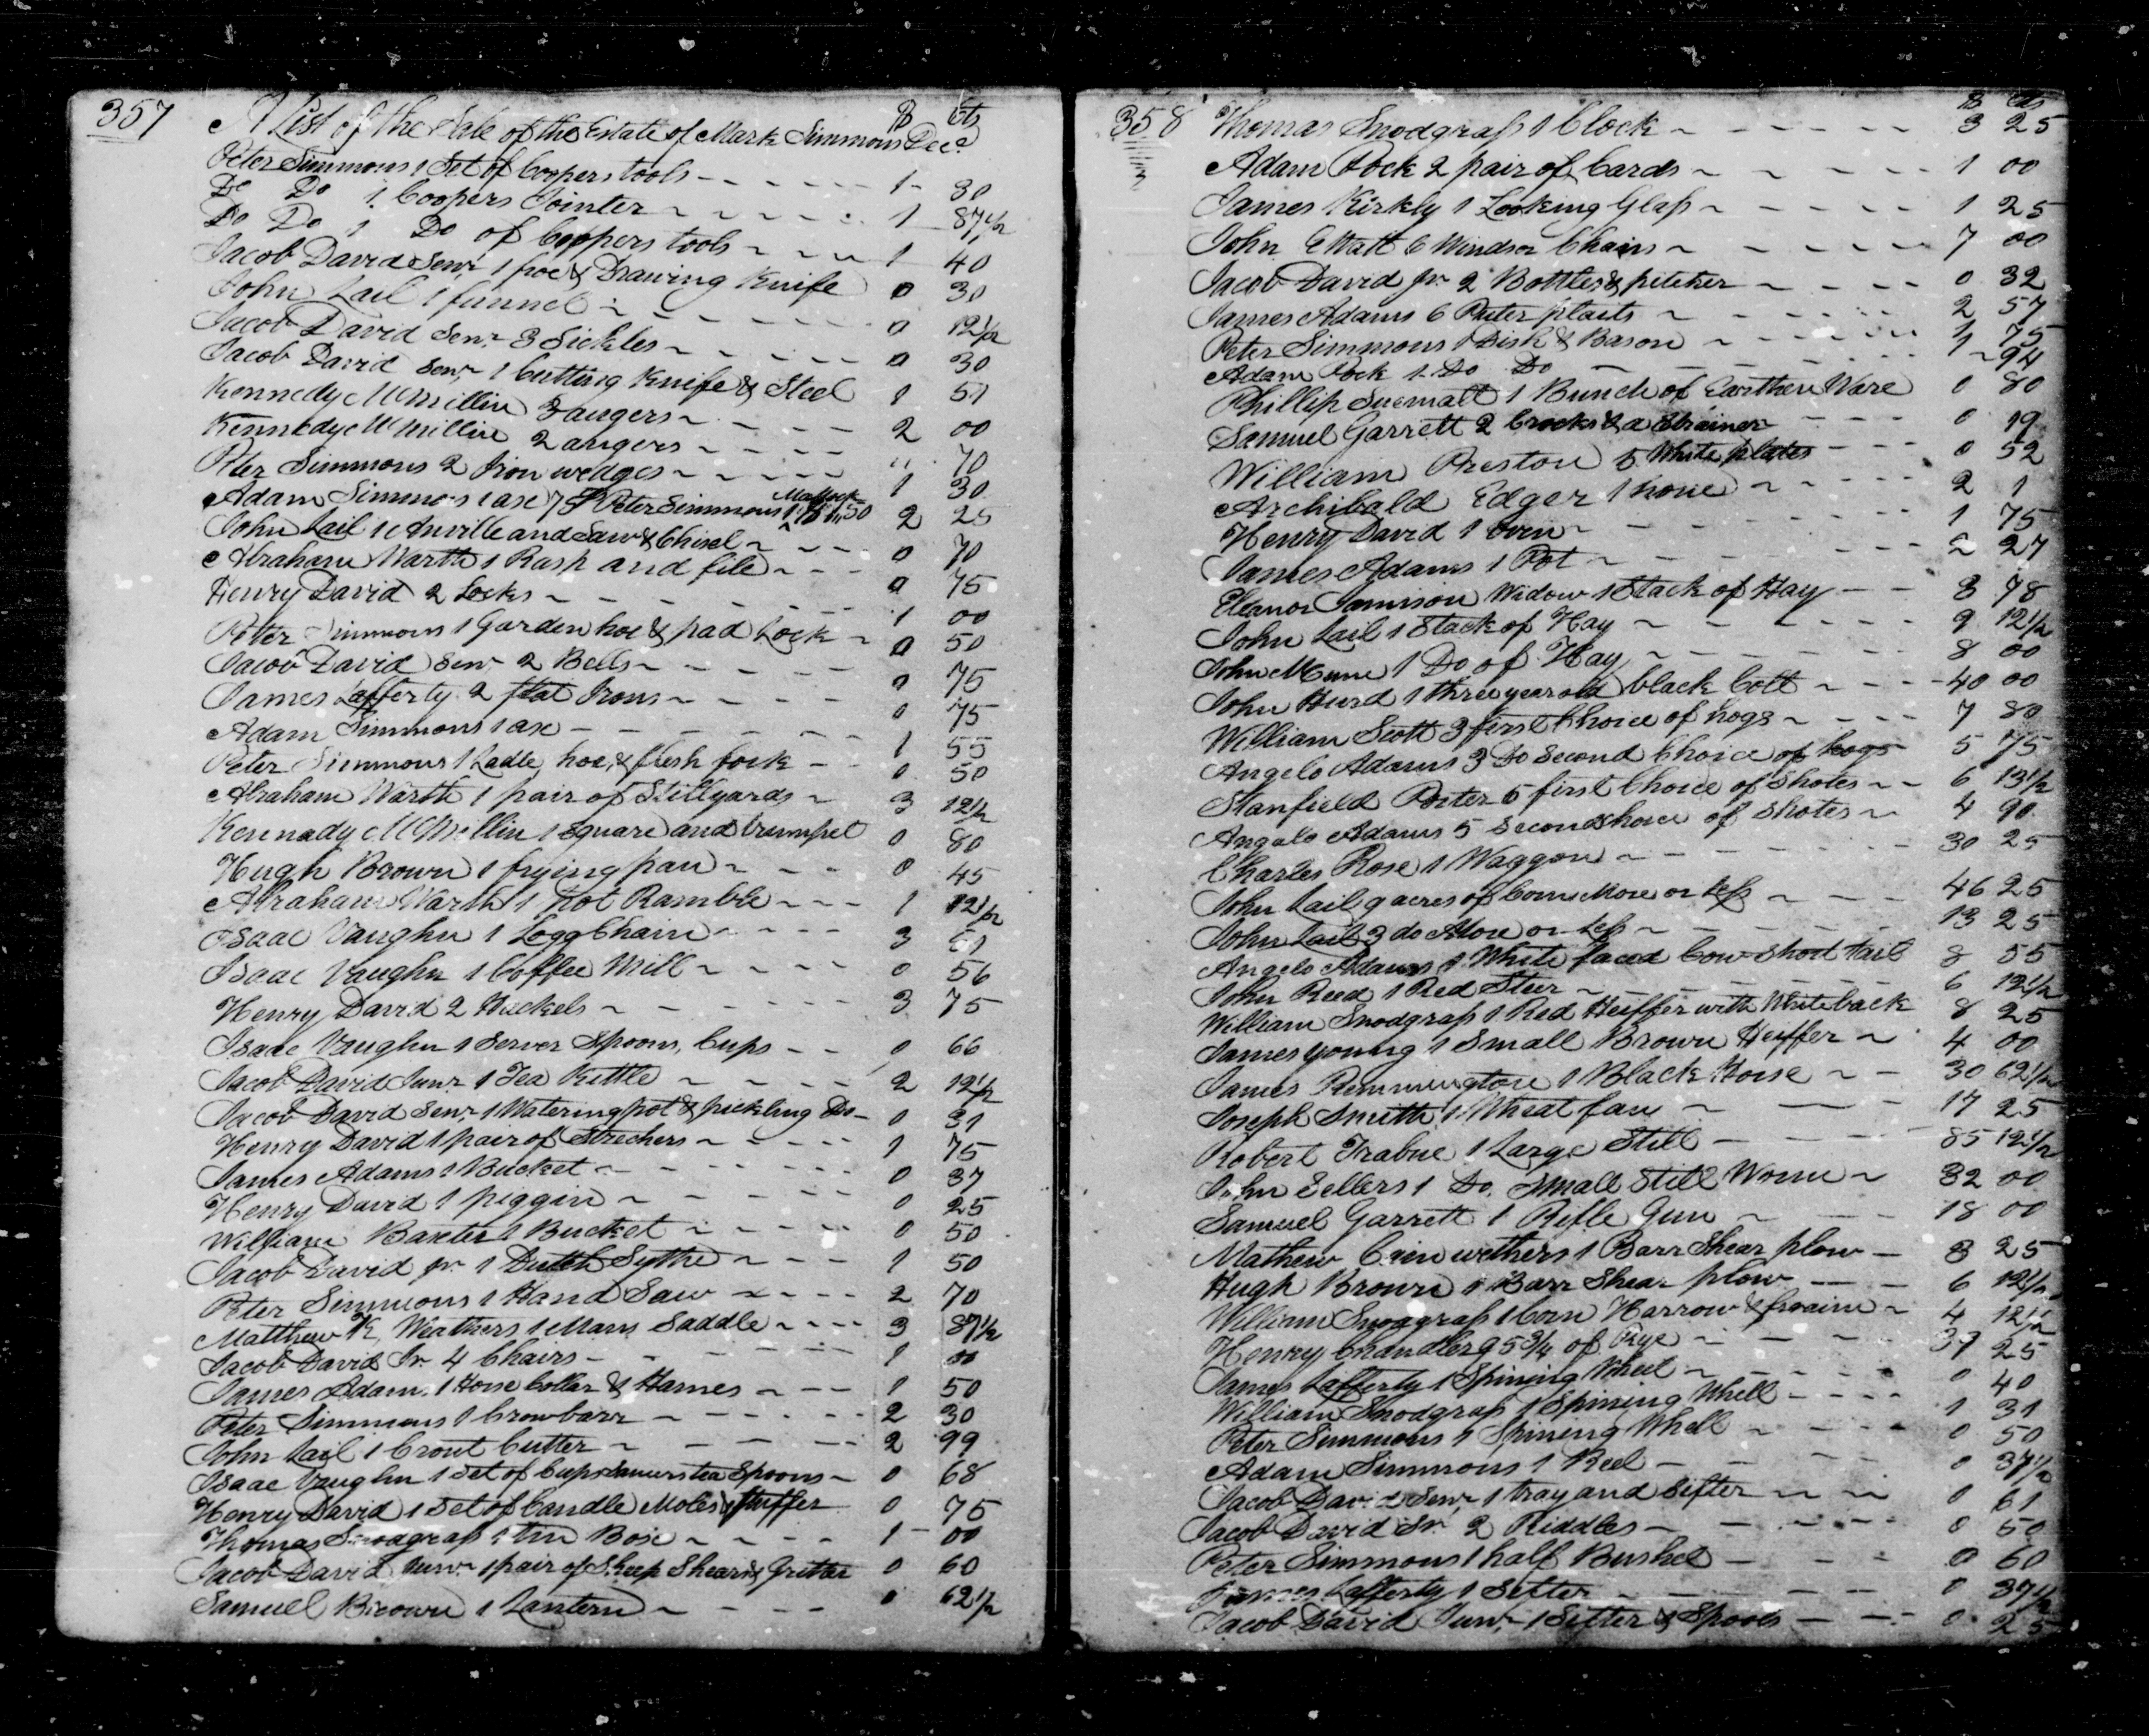 357
$ cts
A List of the Sale of the Estate of Mark Simmons Decd
Peter Simmons 1 Set of Coopers tools 1 30
Do Do 1 Coopers Jointer 1 87 1/2
Do Do 1 Do of Coppers tools 1 40
Jacob David Senr 1 froe & Drawing Knife 0 30
John Lail 1 funnel 0 12 1/2
Jacob David Senr 3 Sickles 0 30
Jacob David Senr 1 Cutting Knife & Steel 1 51
Kennedy McMillin 3 augers 2 00
Kennedy McMillin 2 augers " 70
Peter Simmons 2 Iron wedges 1 30
Adam Simmons 1 axe 75 Peter Simmons 1 Mattock $1,,50 2 25
John Lail 1 Anville and Saw & Chisel 0 70
Abraham Warth 1 Rasp and file 0 75
Henry David 2 Locks 1 00
Peter Simmons 1 Garden hoe & pad Lock 0 50
Jacob David Senr 2 Bells 0 75
James Lafferty 2 flat Irons 0 75
Adam Simmons 1 axe 1 55
Peter Simmons 1 Ladle, hoe, & flesh fork 0 50
Abraham Warth 1 pair of Stillyards 3 12 1/2
Kennady McMillin 1 square and trumpet 0 80
Hugh Brown 1 frying pan 0 45
Abraham Warth 1 pot Ramble 1 12 1/2
Isaac Vaughn 1 Logg Chain 3 51
Isaac Vaughn 1 Coffee Mill 0 56
Henry David 2 Hackels 3 75
Isaac Vaughn 1 Server Spoons, Cups 0 66
Jacob David Junr 1 Tea Kittle 2 12 1/2
Jacob David Senr 1 Watering pot & pickling Do 0 31
Henry David 1 pair of Strechers 1 75
James Adams 1 Bucket 0 37
Henry David 1 piggin 0 25
William Baxter 1 Bucket 0 50
Jacob David jr. 1 Dutch Sythe 1 50
Peter Simmons 1 Hand Saw 2 70
Matthew K Weathers 1 Mans Saddle 3 87 1/2
Jacob David Jr. 4 Chairs 1 00
James Adams 1 Horse Collar & Hames 1 50
Peter Simmons 1 Crowbarr 2 30
John Lail 1 Crout Cutter 2 99
Isaac Vaughn 1 Set of Cups Saucers tea Spoons 0 68
Henry David 1 Set of Candle Moles & Snuffer 0 75
Thomas Snodgrass 1 Tin Box 1 00
Jacob David Junr 1 pair of Sheep Shears & Gritter 0 60
Samuel Broown 1 Lantern 0 62 1/2
358
$ cts
Thomas Snodgrass 1 Clock 3 25
Adam Pock 2 pair of Cards 1 00
James Kirkly 1 Looking Glass 1 25
John Ewatt 6 Windsor Chairs 7 00
Jacob David jr. 2 Bottles & pitcher 0 32
James Adams 6 Puter plaits 2 57
Peter Simmons 1 Dish & Bason 1 75
Adam Pock 1 Do Do 1 94
Phillip Suemalt 1 Bunch of Earthen Ware 0 80
Samuel Garrett 2 Crocks & a Strainer 0 19
William Preston 5 White plates 0 52
Archibald Edger 1 hone 2 1
Henry David 1 Oven 1 75
James Adams 1 Pot 2 27
Eleanor Jamison Widow 1 Stack of Hay 3 78
John Lail 1 Stack of Hay 9 12 1/2
John McCune 1 Do of Hay 8 00
John Hurd 1 three year old black Colt 40 00
William Scott 3 first Choice of hogs 7 80
Angelo Adams 3 Do Second Choice of hogs 5 75
Stanfield Porter 5 first Choice of Shotes 6 13 1/2
Angelo Adams 5 Second choice of Shotes 4 90
Charles Rose 1 Waggon 30 25
John Lail 9 acres of Corn More or Less 46 25
John Lail 3 do More or Less 13 25
Angelo Adams 1 White faced Cow Short tail 8 55
John Reed 1 Red Steer 6 12 1/2
William Snodgrass 1 Red Heiffer with White back 8 25
James Young 1 Small Brown Heiffer 4 00
James Remmington 1 Black Horse 30 62 1/2
Joseph Smith 1 Wheat fan 17 25
Robert Trabue 1 Large Still 85 12 1/2
John Sellers 1 Do. Small Still Worm 32 00
Samuel Garrett 1 Rifle Gun 18 00
Mathew Cainwethers 1 Barr Shear plow 8 25
Hugh Brown 1 Barr Shear plow 6 12 1/2
William Snodgrass 1 Corn Harrow & fraim 4 12 1/2
Henry Chandler 95 3/4 of Rye 37 25
James Lafferty 1 Spining Wheel 0 40
William Snodgrass 1 Spining Whell 1 31
Peter Simmons 1 Spining Whell 0 50
Adam Simmons 1 Reel 0 37 1/2
Jacob David Senr 1 tray and Sifter 0 61
Jacob David Sr. 2 Riddles 0 50
Peter Simmons 1 half Bushel 0 60
James Lafferty 1 Sifter 0 37 1/2
Jacob David Junr 1 Sifter & Spools 0 25